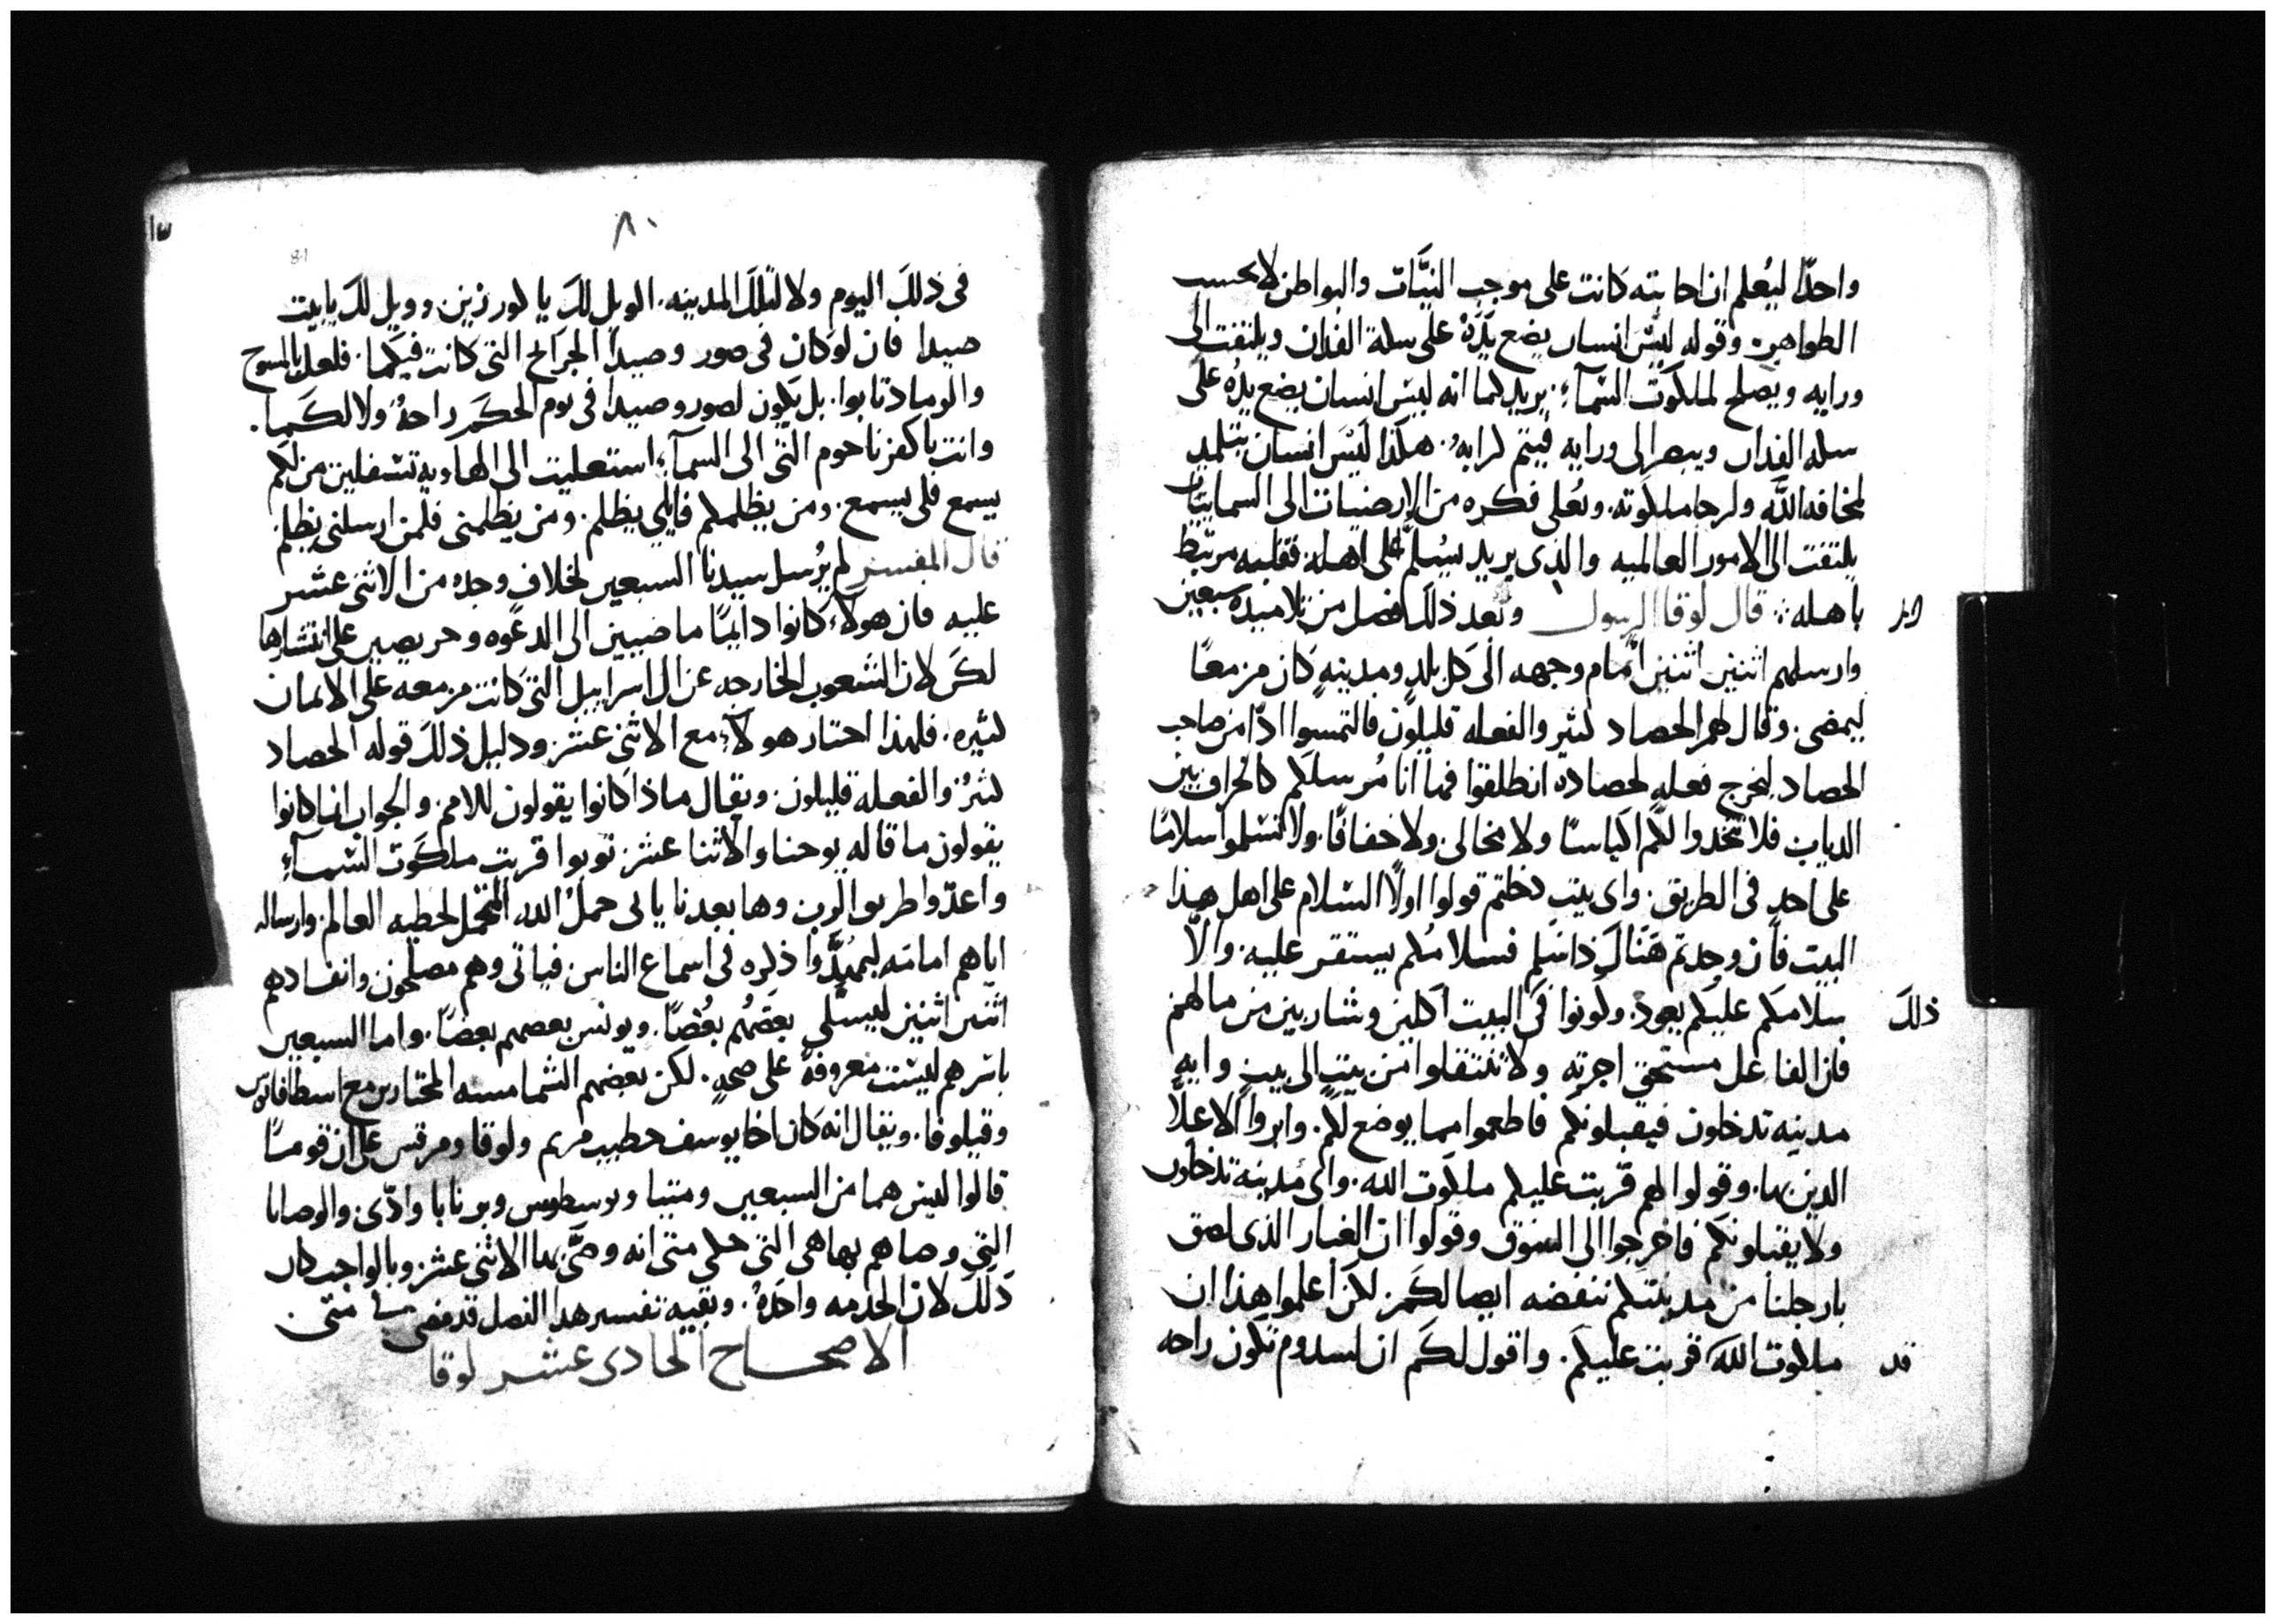 واحدًا ليُعلم ان اجابته كانت على موجب النيَّات والبواطن لا بحسب
الظواهر. وقوله ليسَ انسان يضع يدَهُ على سكة الفدان ويلتفت الى
ورايه ويصلح لملكوت السَّماءِ. يريد كما انه ليسَ انسان يضع يدُه على
سكه الفدان ويبصر الى ورايه فيتم كرابه. هكذا ليسَ انسان يتلمد
لمخافه الله ولرجا ملكوته. ويُعلى فكره من الارضيات الى السماييات
يلتفت الى الامور العالميه والذى يريد يسُلّم على اهله. فقلبه مرتبط
باهله ∴ قال لوقا الرسول وبعد ذلك فصل من تلاميذه سبعين
وارسلهم اثنين اثنين امام وجهه الى كل بلدٍ ومدينهٍ كان مزمعًا
ليمضى. وقال لهم الحصاد كثير والفعله قليلون فالتمسوا اذًا من صاحب
الحصاد ليخرج فعله لحصاده انطلقوا فها انا مُرسلكم كالخراف بين
الدياب فلا تتخدوا لكم اكياسًا ولا مخالى ولا خفافًا. ولا تسلموا سلامًا
على احدٍ فى الطريق. واى بيتٍ دخلتم قولوا اولًا السَّلام على اهل هذا
البيت فان وجدتم هَناك ذا سَلم فسلامُكم يستقر عليه. والّا
سلامكم عليكم يعود. وكونوا فى ذلك البيت اكلين وشاربين من مالهم
فان الفاعل مستحق اجرته ولا تنتقلوا من بيتٍ الى بيتٍ وايه
مدينه تدخلون فيقبلونكم فاطعموا مما يوضع لكم. وابروا الاعلّا
الدين بها. وقولوا لهم قربت عليكم ملكوت الله. واى مدينه تدخلون
ولا يقبلونكم فاخرجوا الى السَوق وقولوا ان الغبار الذى لصق
بارجلنا من مدينتكم ننفضه ايضا لكم. لكن أعلموا هذا ان
قد ملكوت الله قربت عليكم. واقول لكم ان لسدوم تكون راحه
٨٠
81
فى ذلك اليوم ولا لتلك المدينه. الويل لك يا كورزين. وويل لك يا بيت
صيدا فان لو كان فى صور وصيدا الجرايح التى كانت فيكما. فلعل بالمسوح
والرماد تابوا. بل يكون لصور وصيدا فى يوم الحكم راحةُ ولا لكما.
وانتِ يا كفرناحوم التى الى السَمآءِ استعليت الى الهاويه تتسفلين من لكم
يسمع فلى يسمع. ومن يظلمكم فايلى يظلم. ومن يظلمنى فلمن ارسلنى يظلم
قال المفسر لم يُرسل سيدنا السبعين لخلافٍ وجدُه من الاثنى عشر
عليه فان هولآء كانوا دايمًا ماضيين الى الدعوه وحريصين على انتشارها
لكن لان الشعوب الخارجه عن ال اسراييل التى كانت مزمعه على الايمان
كثيره. فلهذا اختار هولآءِ مع الاثنى عشر ودليل ذلك قوله الحصاد
كثيرٌ والفعله قليلون. ويقال ماذا كانوا يقولون للامم. والجواب انما كانوا
يقولون ما قاله يوحنا والاثنا عشر توبوا قربت ملكوت السَّمآءِ
واعدّوا طريق الرب وها بعدنا ياتى حملُ الله المتحمّل لخطيه العالم وارساله
اياهم امامه ليمهِّدوا ذكره فى اسماع الناس فياتى وهم مصلحون وانفادهم
اثنين اثنين ليسلى بعضُهم بعضًا. ويونس بعضهم بعضًا. واما السبعين
باسرهم ليست معروفةً على صحهٍ. لكن بعضهم الشمامسه المختارين مع اسطافانوس
وقيلوفا. ويقال انه كان اخا يوسف خطيب مريم ولوقا ومرقس على ان قومًا
قالوا ليس هما من السبعين ومتيا ويوسطوس وبرنابا وادّى. والوصايا
التى وصاهم بها هى التى حكى متى انه وصَّى بها الاثنى عشر وبالواجب كان
ذلك لان الخدمه واحدهُ. وبقيه تفسير هذا الفصل قد مضى متى
الاصحاح الحادى عشر لوقا